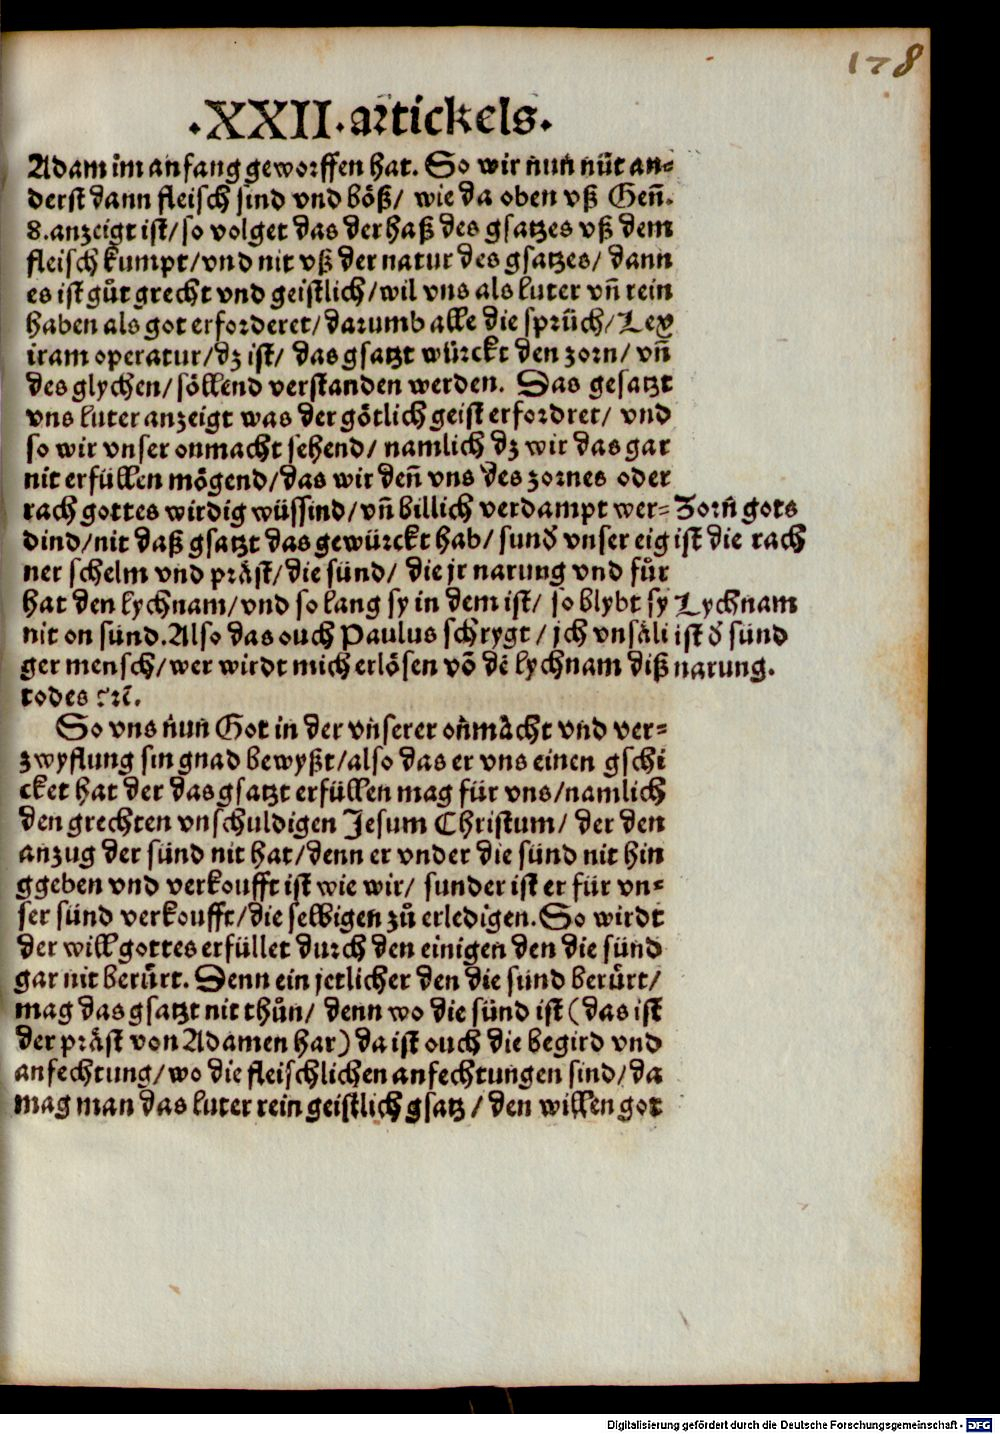 178
.XXII.artickels.
Adam im anfang geworffen hat. So wir nun nüt an⸗
derst dann fleisch sind vnd böß/ wie da oben vß Geñ.
8.anzeigt ist/so volget das der haß des gsatzes vß dem
fleisch kumpt/vnd nit vß der natur des gsatzes/ dann
es ist gůt grecht vnd geistlich/wil vns als luter vñ rein
haben als got erforderet/darumb alle die sprüch/Lex
iram operatur/dz ist/ das gsatzt würckt den zorn/ vñ
des glychen/söllend verstanden werden. Das gesatzt
vns luter anzeigt was der götlich geist erfordret/ vnd
so wir vnser onmacht sehend/ namlich dz wir das gar
nit erfüllen mögend/das wir deñ vns des zornes oder
rach gottes wirdig wüssind/vñ billich verdampt wer⸗
dind/nit daß gsatzt das gewürckt hab/ sunð vnser eig
ner schelm vnd präst/die sünd/ die jr narung vnd fůr
hat den lychnam/vnd so lang sy in dem ist/ so blybt sy
nit on sünd.Also das ouch Paulus schrygt/ jch vnsäli
ger mensch/wer wirdt mich erlösen võ dẽ lychnam diß
todes ꝛc̃.
Zorñ gots
ist die rach
Lychnam
ist ð sünd
narung.
So vns nun Got in der vnserer onmächt vnd ver⸗
zwyflung sin gnad bewyßt/also das er vns einen gschi
cket hat der das gsatzt erfüllen mag für vns/namlich
den grechten vnschuldigen Jesum Christum/ der den
anzug der sünd nit hat/denn er vnder die sünd nit hin
ggeben vnd verkoufft ist wie wir/ sunder ist er für vn⸗
ser sünd verkoufft/die selbigen zů erledigen.So wirdt
der will gottes erfüllet durch den einigen den die sünd
gar nit berůrt. Denn ein jetlicher den die sünd berůrt/
mag das gsatzt nit thůn/ denn wo die sünd ist (das ist
der präst von Adamen har) da ist ouch die begird vnd
anfechtung/wo die fleischlichen anfechtungen sind/da
mag man das luter rein geistlich gsatz/ den willen got
Digitalisierung gefördert durch die Deutsche Forschungsgemeinschaft - DFG